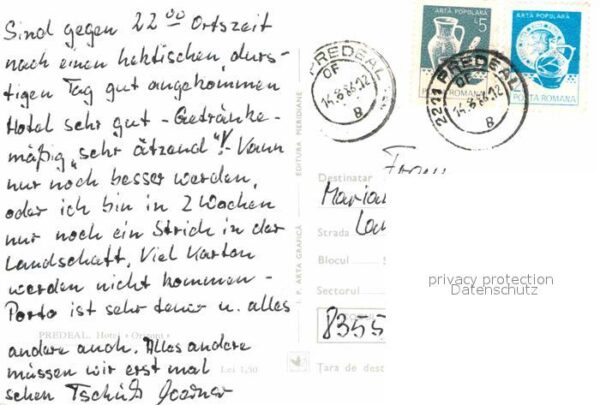 Sind gegen 22⁰⁰ Ortszeit
nach einen hektischen, durs-
tigen Tag gut angekommen
Hotel sehr gut - Getränke-
mäßig „sehr ätzend"! - Kann
nur noch besser werden,
oder ich bin in 2 Wochen
nur noch ein Strich in der
Landschaft. Viel Karten
werden nicht kommen -
Porto ist sehr teuer u. alles
andere auch. Alles andere
müssen wir erst mal
sehen Tschüß
PREDEAL. Hotel « Orizont »
Lei 1,50
I. P. ARTA GRAFICĂ
EDITURA MERIDIANE
ARTĂ POPULARĂ
5L
POSTA ROMANA
ARTĂ POPULARĂ
POSTA ROMANA
PREDEAL
OF
14.8.86.12
8
2211 PREDEAL
OF
14.8.86.12
8
Destinatar
Frau
Strada
Blocul
Sectorul
8355
Țara de dest
privacy protection
Datenschutz